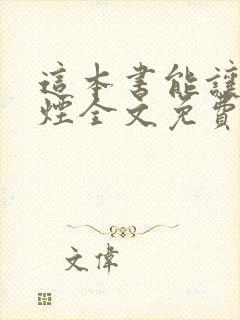 這本書能讓
煙全文免費
文偉